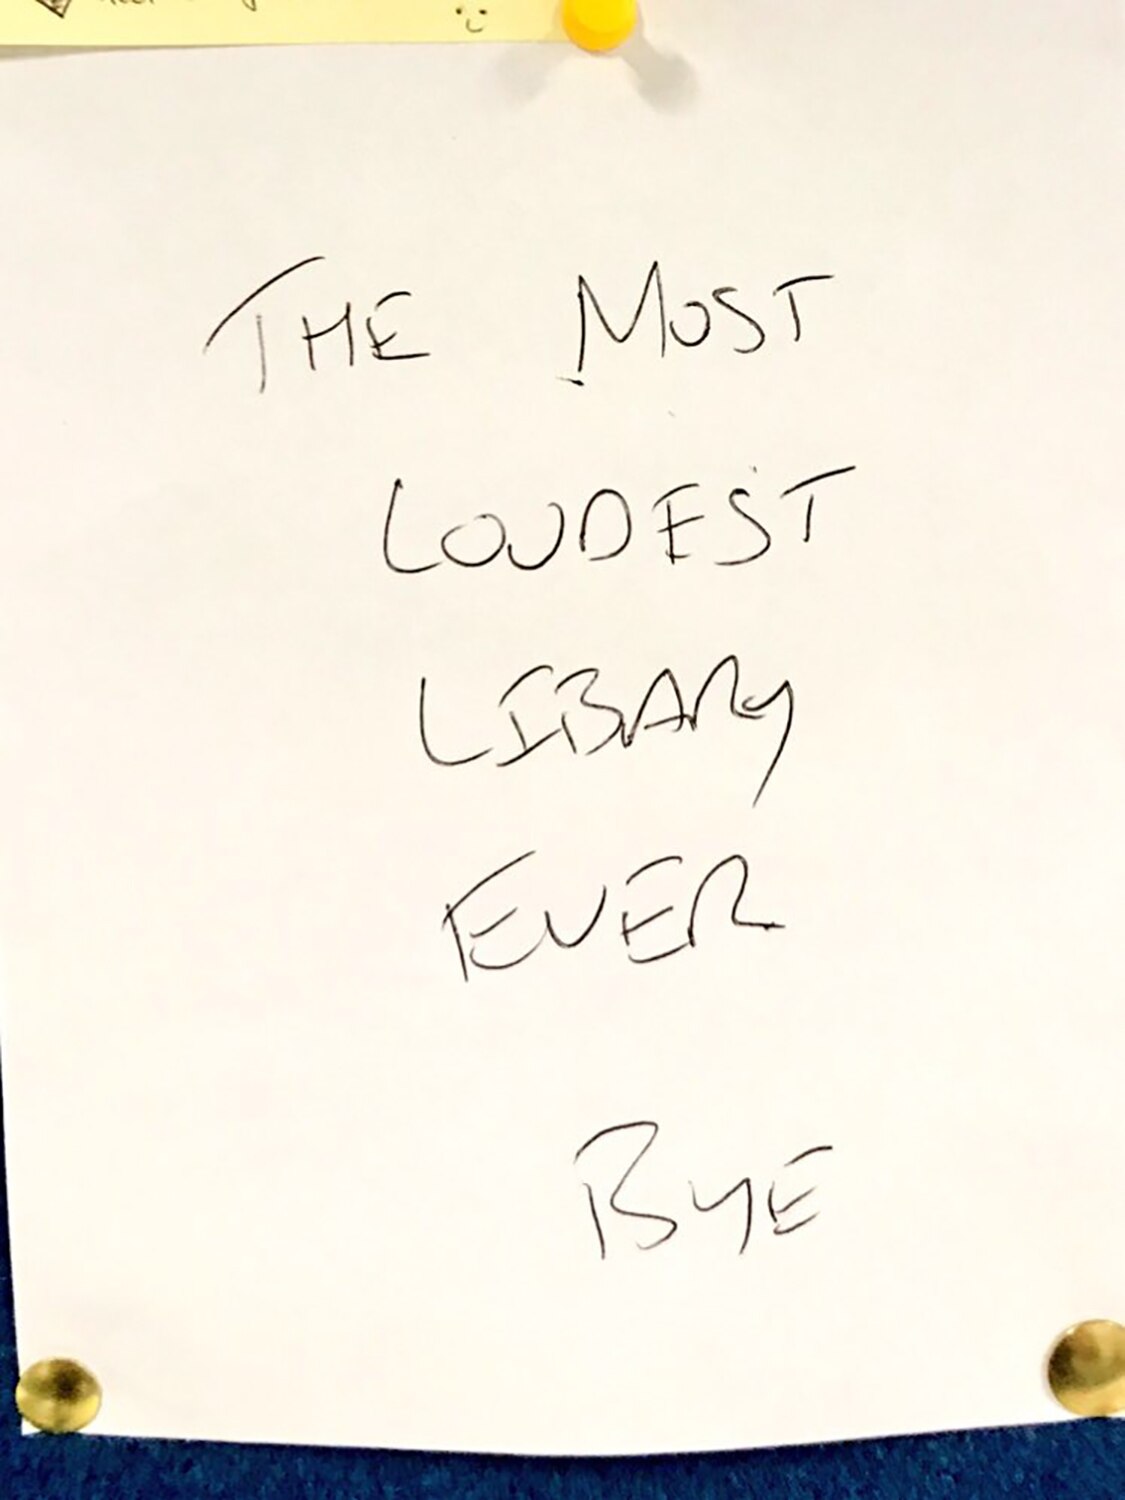 THE MOST
LOUDEST
LIBARY
EVER
BYE